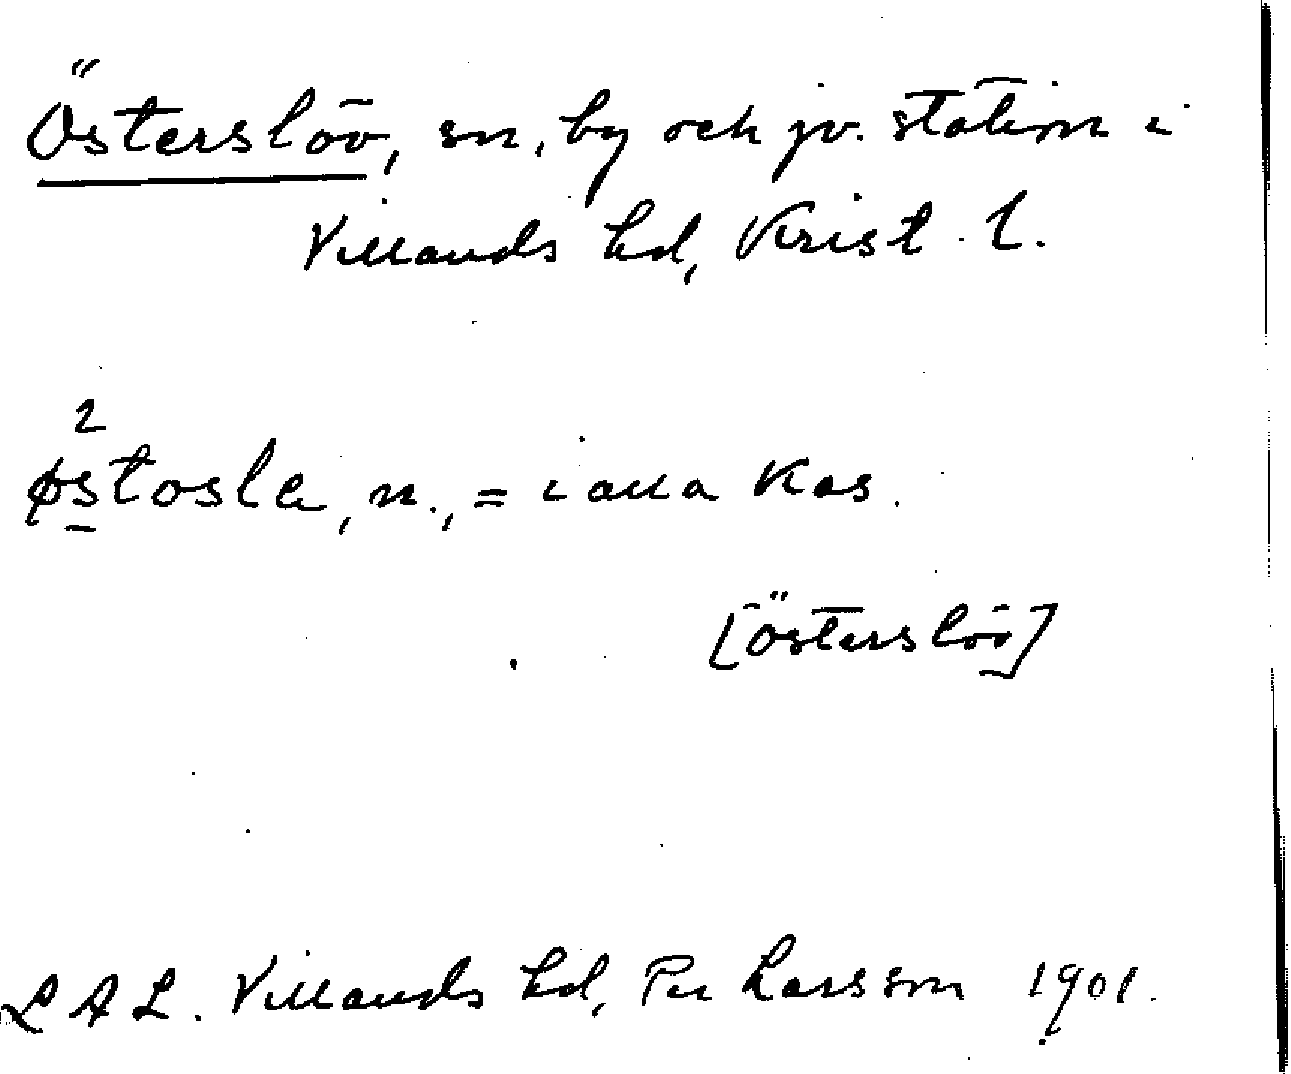 Österslöv, sn, by och jv. station i
Villands hd, Krist. l.
2
østosla, n., = i alla kas.
[Österslöv]
LAL. Villands hd, Per Larsson 1901.